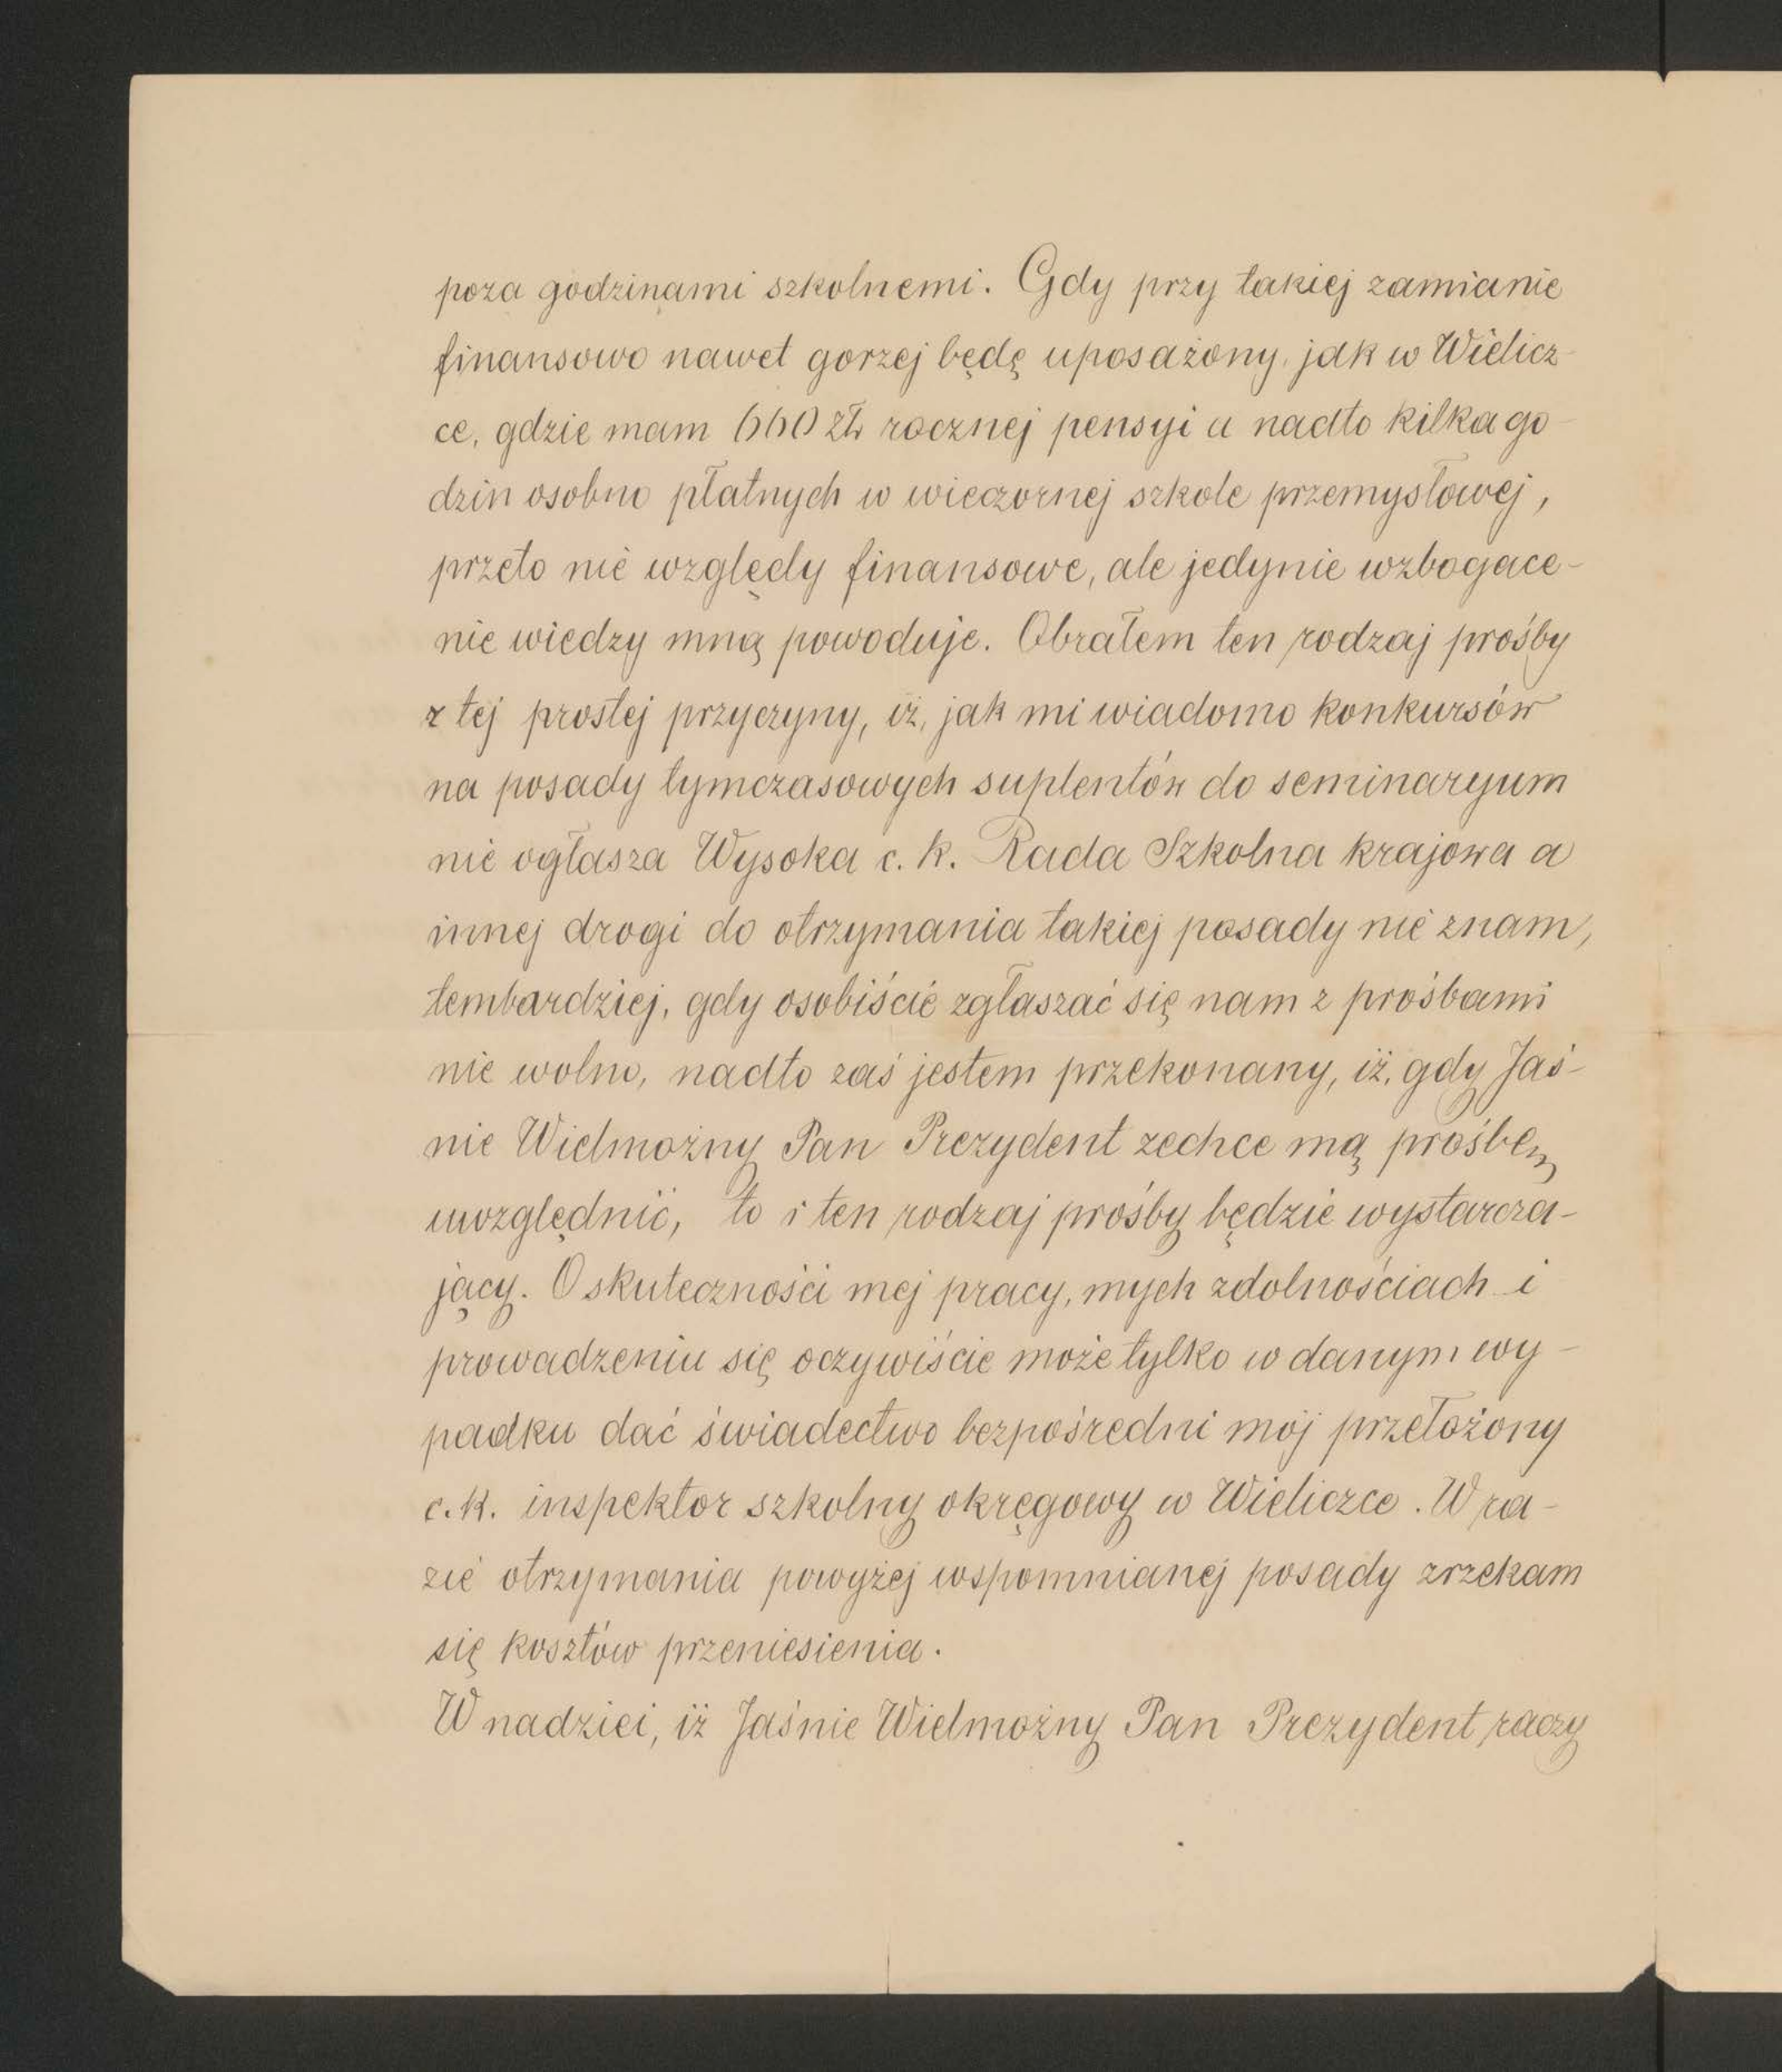 poza godzinami szkolnemi. Gdy przy takiej zamianie
finansowo nawet gorzej będę uposażony, jak w Wielicz-
ce, gdzie mam 660 zł rocznej pensyi a nadto kilka go-
dzin osobno płatnych w wieczornej szkole przemysłowej,
przeto nie względy finansowe, ale jedynie wzbogace-
nie wiedzy mną powoduje. Obrałem ten rodzaj prośby
z tej prostej przyczyny, iż, jak mi wiadomo konkursów
na posady tymczasowych suplentów do seminaryum
nie ogłasza Wysoka c. k. Rada Szkolna krajowa a
innej drogi do otrzymania takiej posady nie znam,
tembardziej, gdy osobiście zgłaszać się nam z prośbami
nie wolno, nadto zaś jestem przekonany, iż, gdy Jaś-
nie Wielmożny Pan Prezydent zechce mą prośbę
uwzględnić, to i ten rodzaj prośby będzie wystarcza-
jący. O skuteczności mej pracy, mych zdolnościach i
prowadzeniu się oczywiście może tylko w danym wy-
padku dać świadectwo bezpośredni mój przełożony
c. k. inspektor szkolny okręgowy w Wieliczce. W ra-
zie otrzymania powyżej wspomnianej posady zrzekam
się kosztów przeniesienia.
W nadziei, iż Jaśnie Wielmożny Pan Prezydent raczy